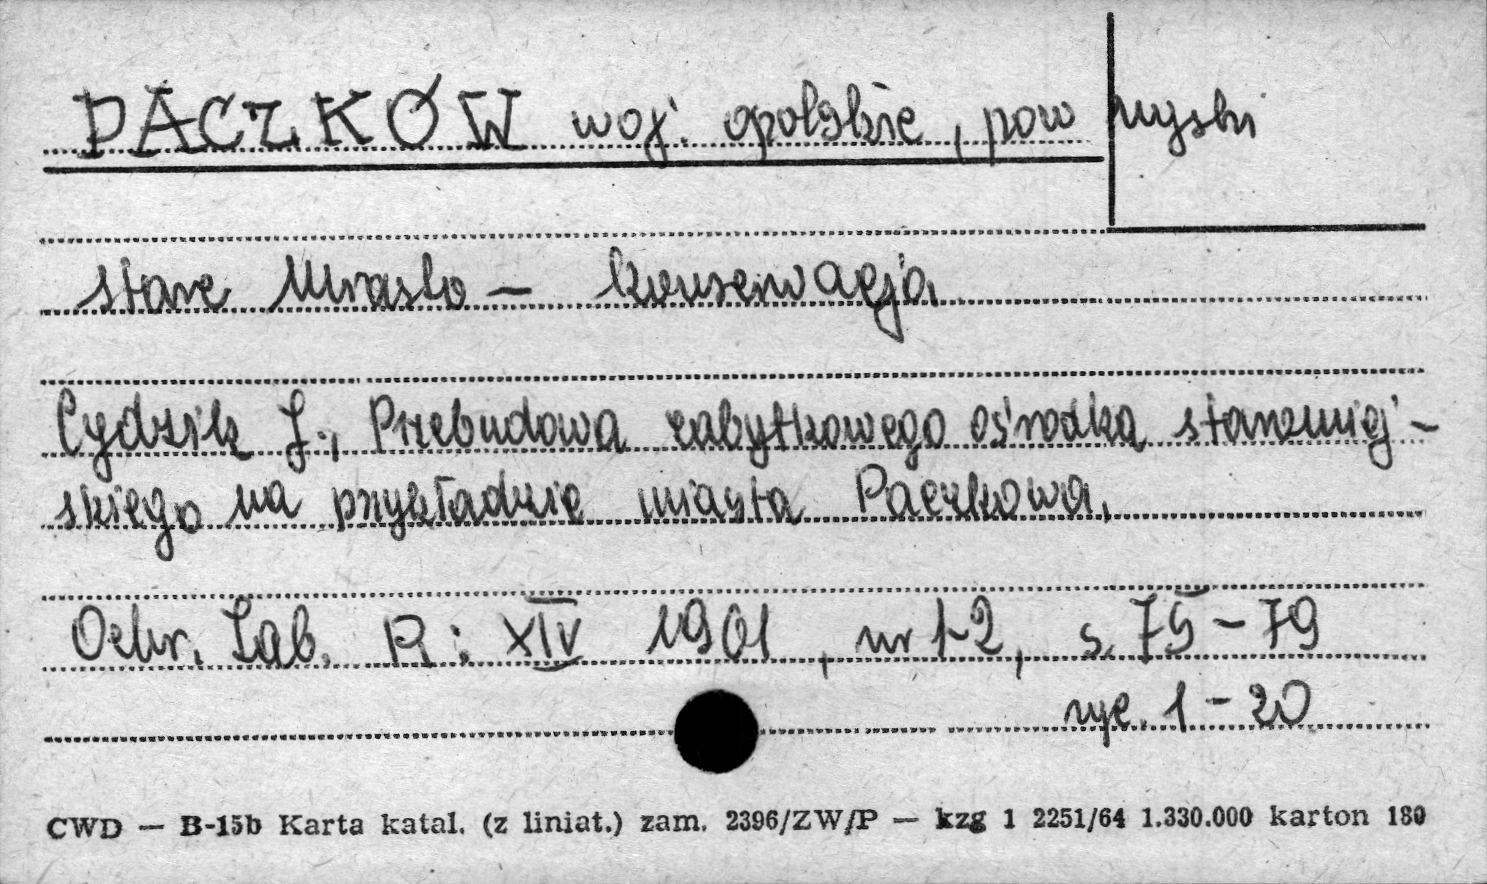 PACZKÓW woj. opolskie, pow nyski
Stare Miasto – konserwacja
Cydzik J., Przebudowa zabytkowego ośrodka staromiej-
skiego na przykładzie miasta Paczkowa,
Ochr. Zab. R: XIV 1961, nr 1-2, s. 75-79
ryc. 1-20
CWD — B-15b Karta katal. (z liniat.) zam. 2396/ZW/P — kzg 1 2251/64 1.330.000 karton 180